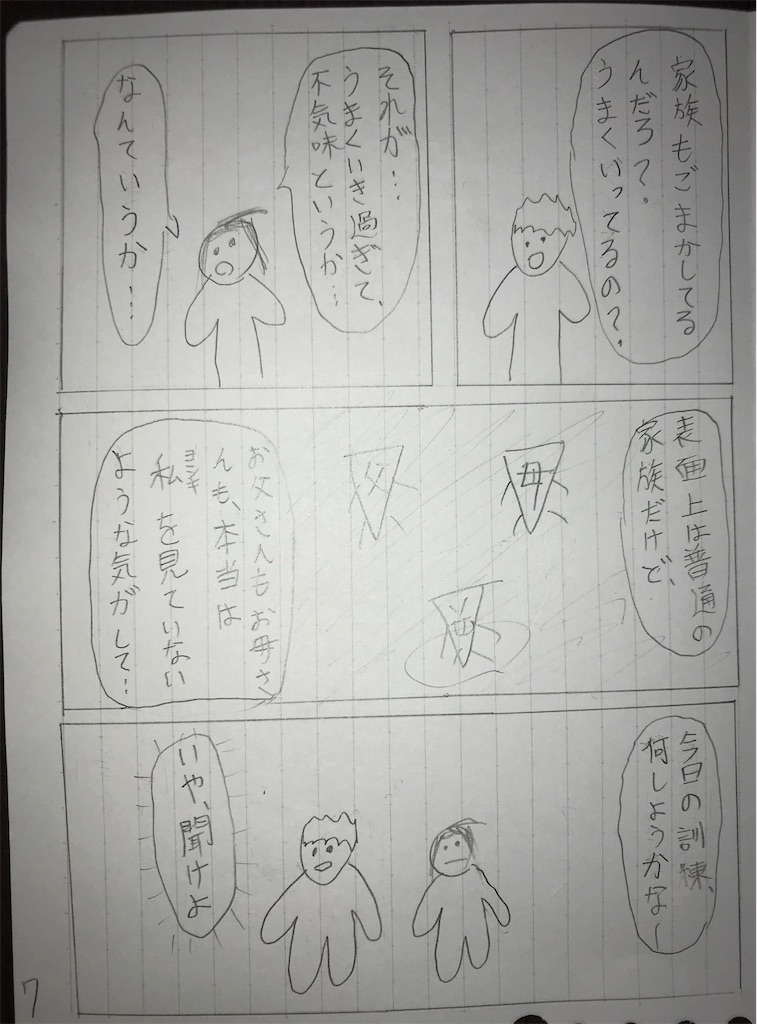 家族もごまかしてる
んだろ？.
うまくいってるの？.
それが…
うまくいき過ぎて、
不気味というか…
なんていうか…
表面上は普通の
家族だけど、
母
父
お父さんもお母さ
んも、本当は
ヨシキ
私を見ていない
ような気がして…
今日の訓練、
何しようかなー
いや、聞けよ
7